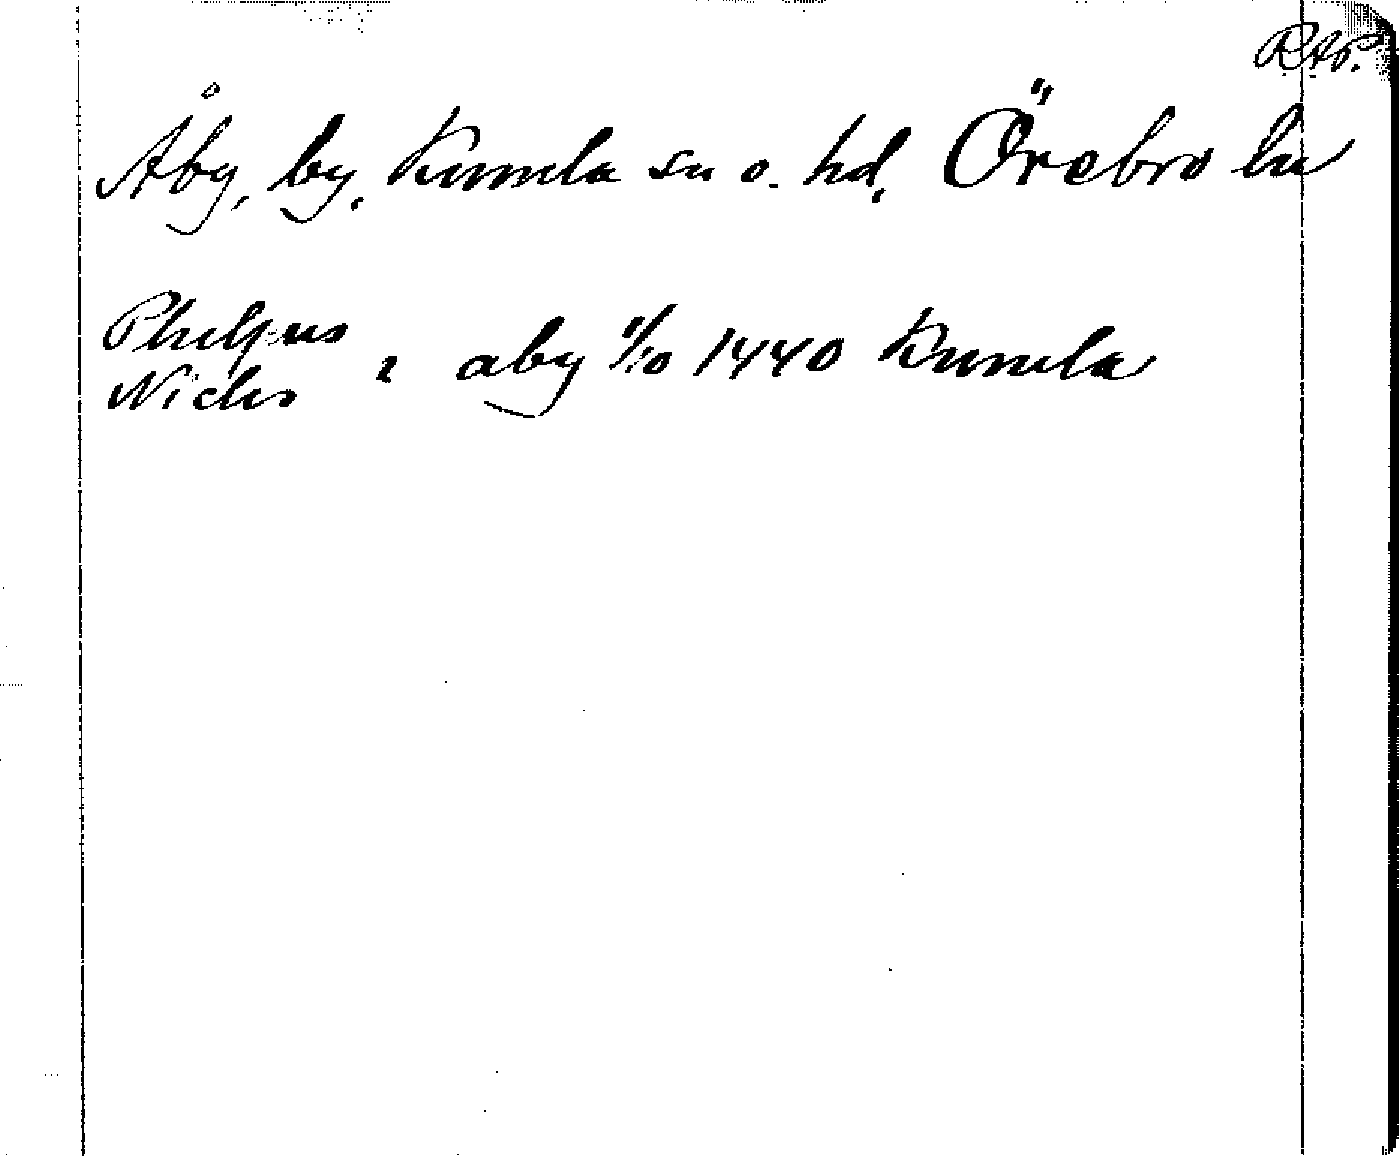 RAP.
Åby, by. Kumla sn o. hd. Örebro län
Phelpus
Niclis
i aby 1/10 1440 Kumla